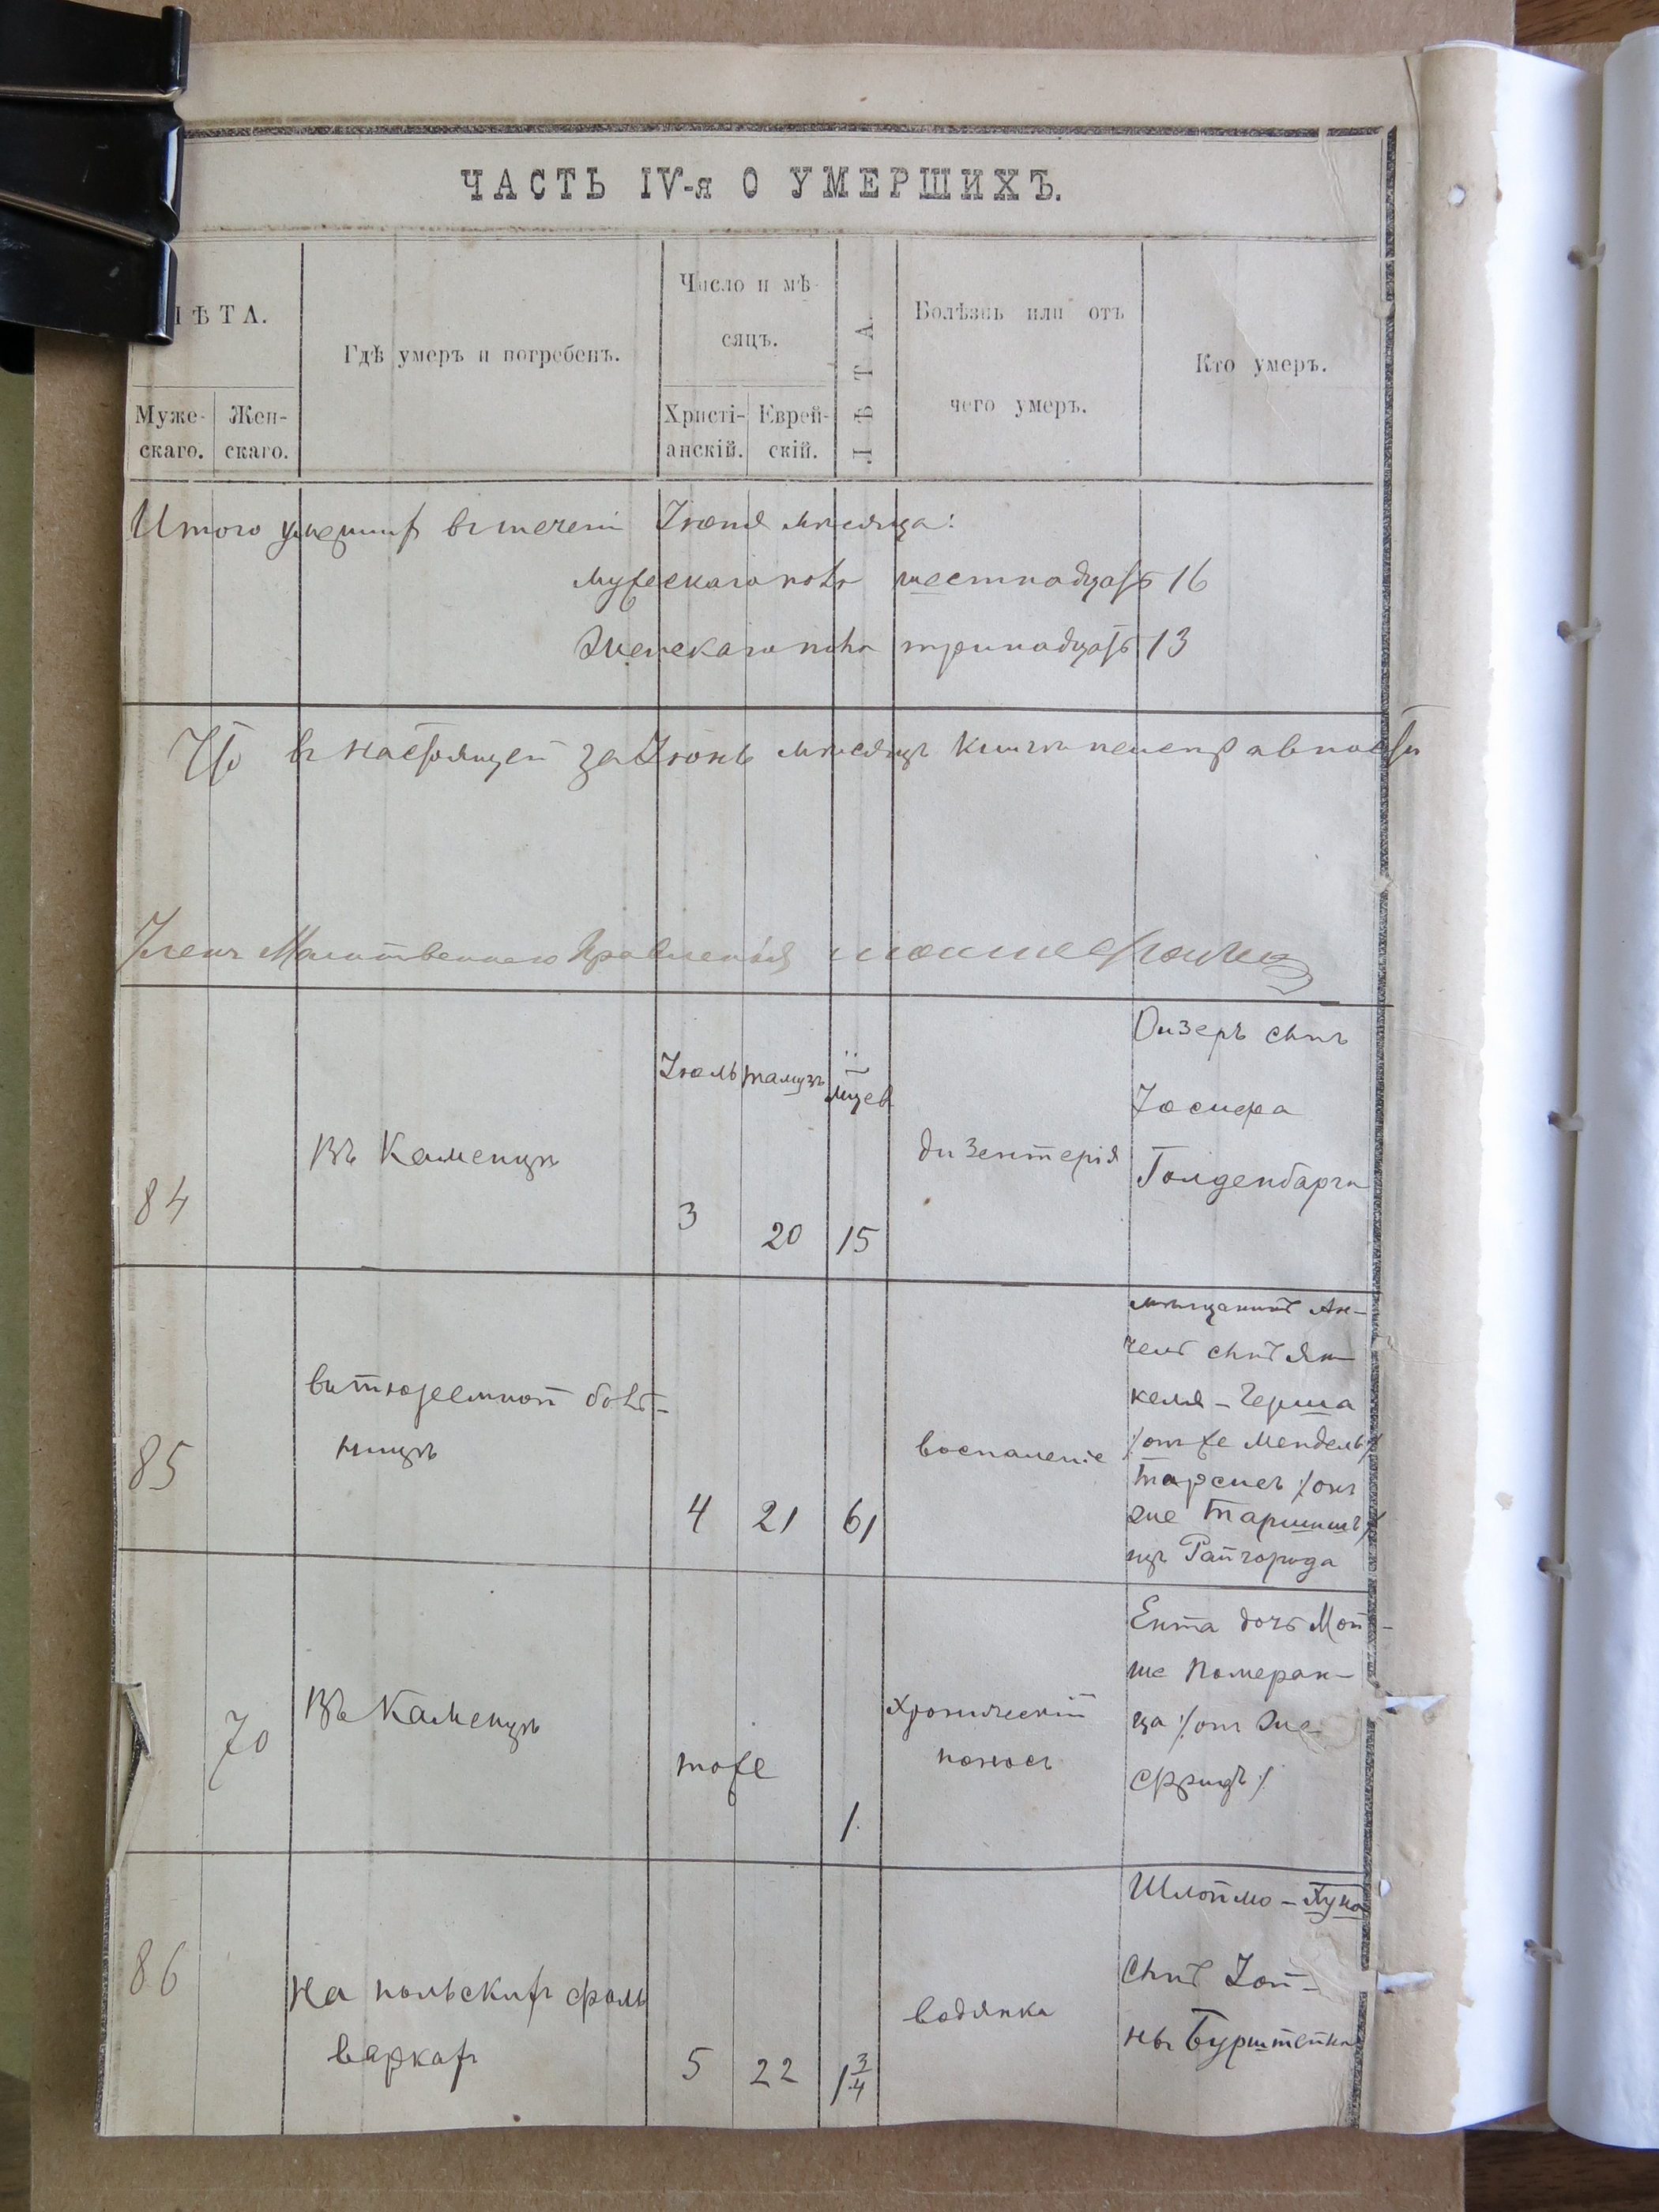 ЧАСТЬ IV-я О УМЕРШИХЪ.
ѢТА.
Муже-
скаго.
Жен-
скаго.
Гдѣ умеръ и погребенъ.
Число и мѣ-
сяцъ.
Христі-
анскій.
Еврей-
скій.
ЛѢТА.
Болѣзнь или отъ
чего умеръ.
Кто умеръ.
Итого умершихъ въ теченіи Іюня мѣсяца:
мужескаго пола шестнадцать 16
женскаго пола тринадцать 13
Что въ настоящей за Іюнь мѣсяцъ книгѣ неисправности
Членъ Молитвеннаго Правленія
84
Въ Каменцѣ
Іюль
3
тамузъ
20
мцев
15
дизентерія
Оизеръ сынъ
Іосифа
Голденбарга
85
въ тюремной боль-
ницѣ
4
21
61
воспаленіе
мѣщанинъ Ан-
чель сынъ Ян-
келя-Герша
/онъ же Мендель/
Тарсисъ /онъ
же Таршишъ/
изъ Райгорода
70
Въ Каменцѣ
тоже
1
хроническій
поносъ
Ента дочь Мой-
ше Померан-
ца /онъ же
Сфридъ/
86
На польскихъ фоль
варкахъ
5
22
1 3/4
водянка
Шлоймо-
сынъ Іой-
ны Бурштейна